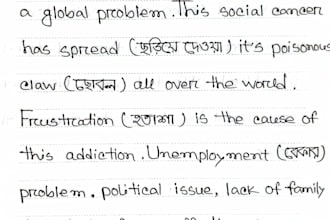 a global problem. This social cancer
has spread (ছড়িয়ে দেওয়া) it's poisonous
claw (ছোবল) all over the world.
Frustration (হতাশা) is the cause of
this addiction. Unemployment (বেকার)
problem. political issue, lack of family